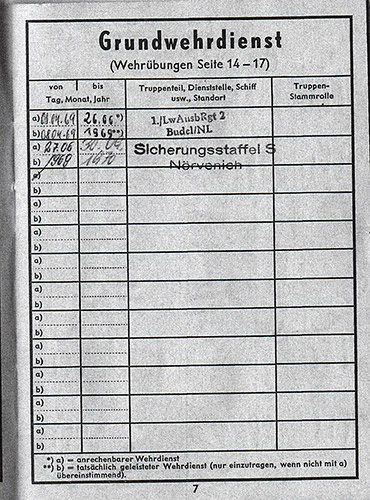 Grundwehrdienst
(Wehrübungen Seite 14 – 17)
von | bis
Tag, Monat, Jahr
Truppenteil, Dienststelle, Schiff
usw., Standort
Truppen-
Stammrolle
a) 01.04.69 26.06 *)
b) 08.04.69 1969 **)
1./LwAusbRgt 2
Budel/NL
a) 27.06 30.09.
b) 1969 1970
Sicherungsstaffel S
Nörvenich
a)
b)
a)
b)
a)
b)
a)
b)
a)
b)
a)
b)
a)
b)
a)
b)
a)
b)
a)
b)
*) a) = anrechenbarer Wehrdienst
**) b) = tatsächlich geleisteter Wehrdienst (nur einzutragen, wenn nicht mit a)
übereinstimmend).
7